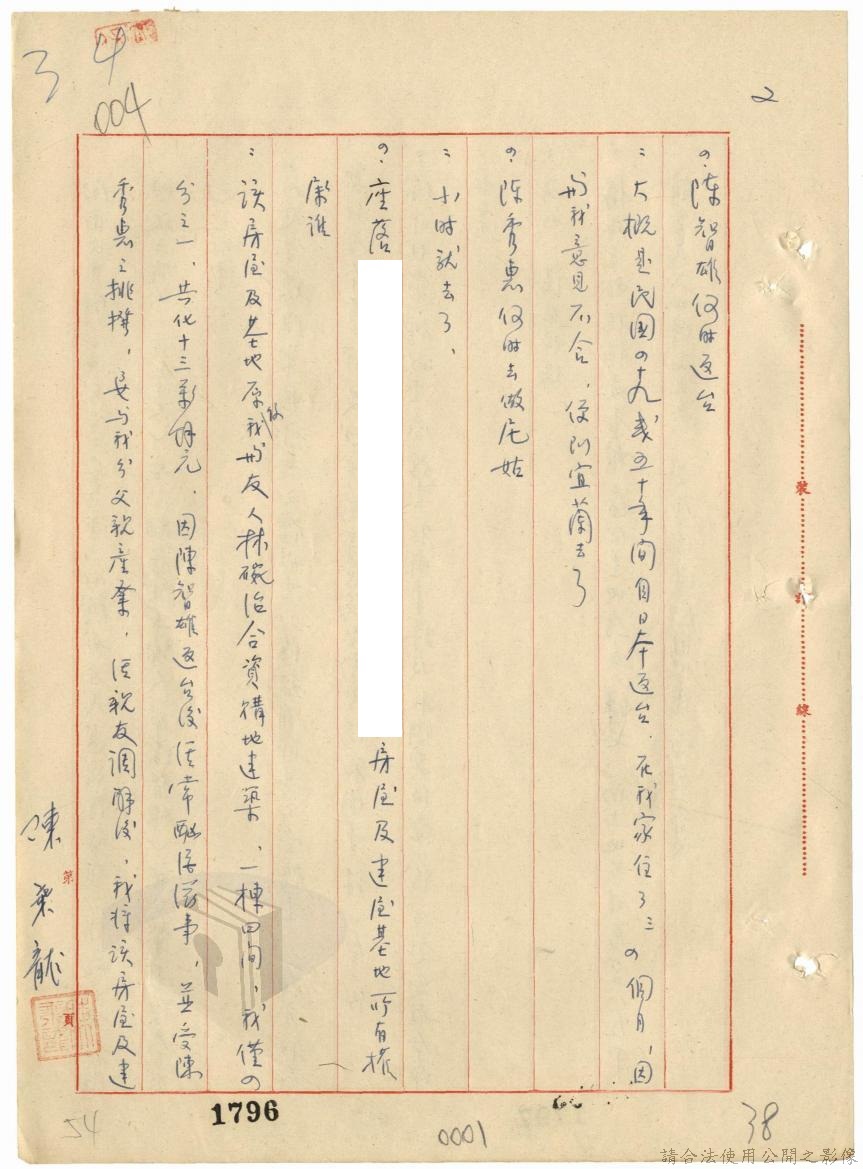 3
4
004
2
問：陳智雄何時返台
：大概是民國四十九或五十年間自日本返台，在我家住了三四個月，因
與我意見不合，便到宜蘭去了
問：陳秀惠何時去做尼姑
：小時就去了、
問：座落
房屋及建屋基地所有權
屬誰
：該房屋及基地原我與友人林碗治合資購地建築，一棟四間，我僅四
分之一，共花十三萬餘元，因陳智雄返台後經常酗酒滋事，並受陳
秀惠之挑撥，要與我分父親產業，經親友調解後，我將該房屋及建
陳榮龍
第
頁
裝
訂
線
54
1796
0001
38
請合法使用公開之影像